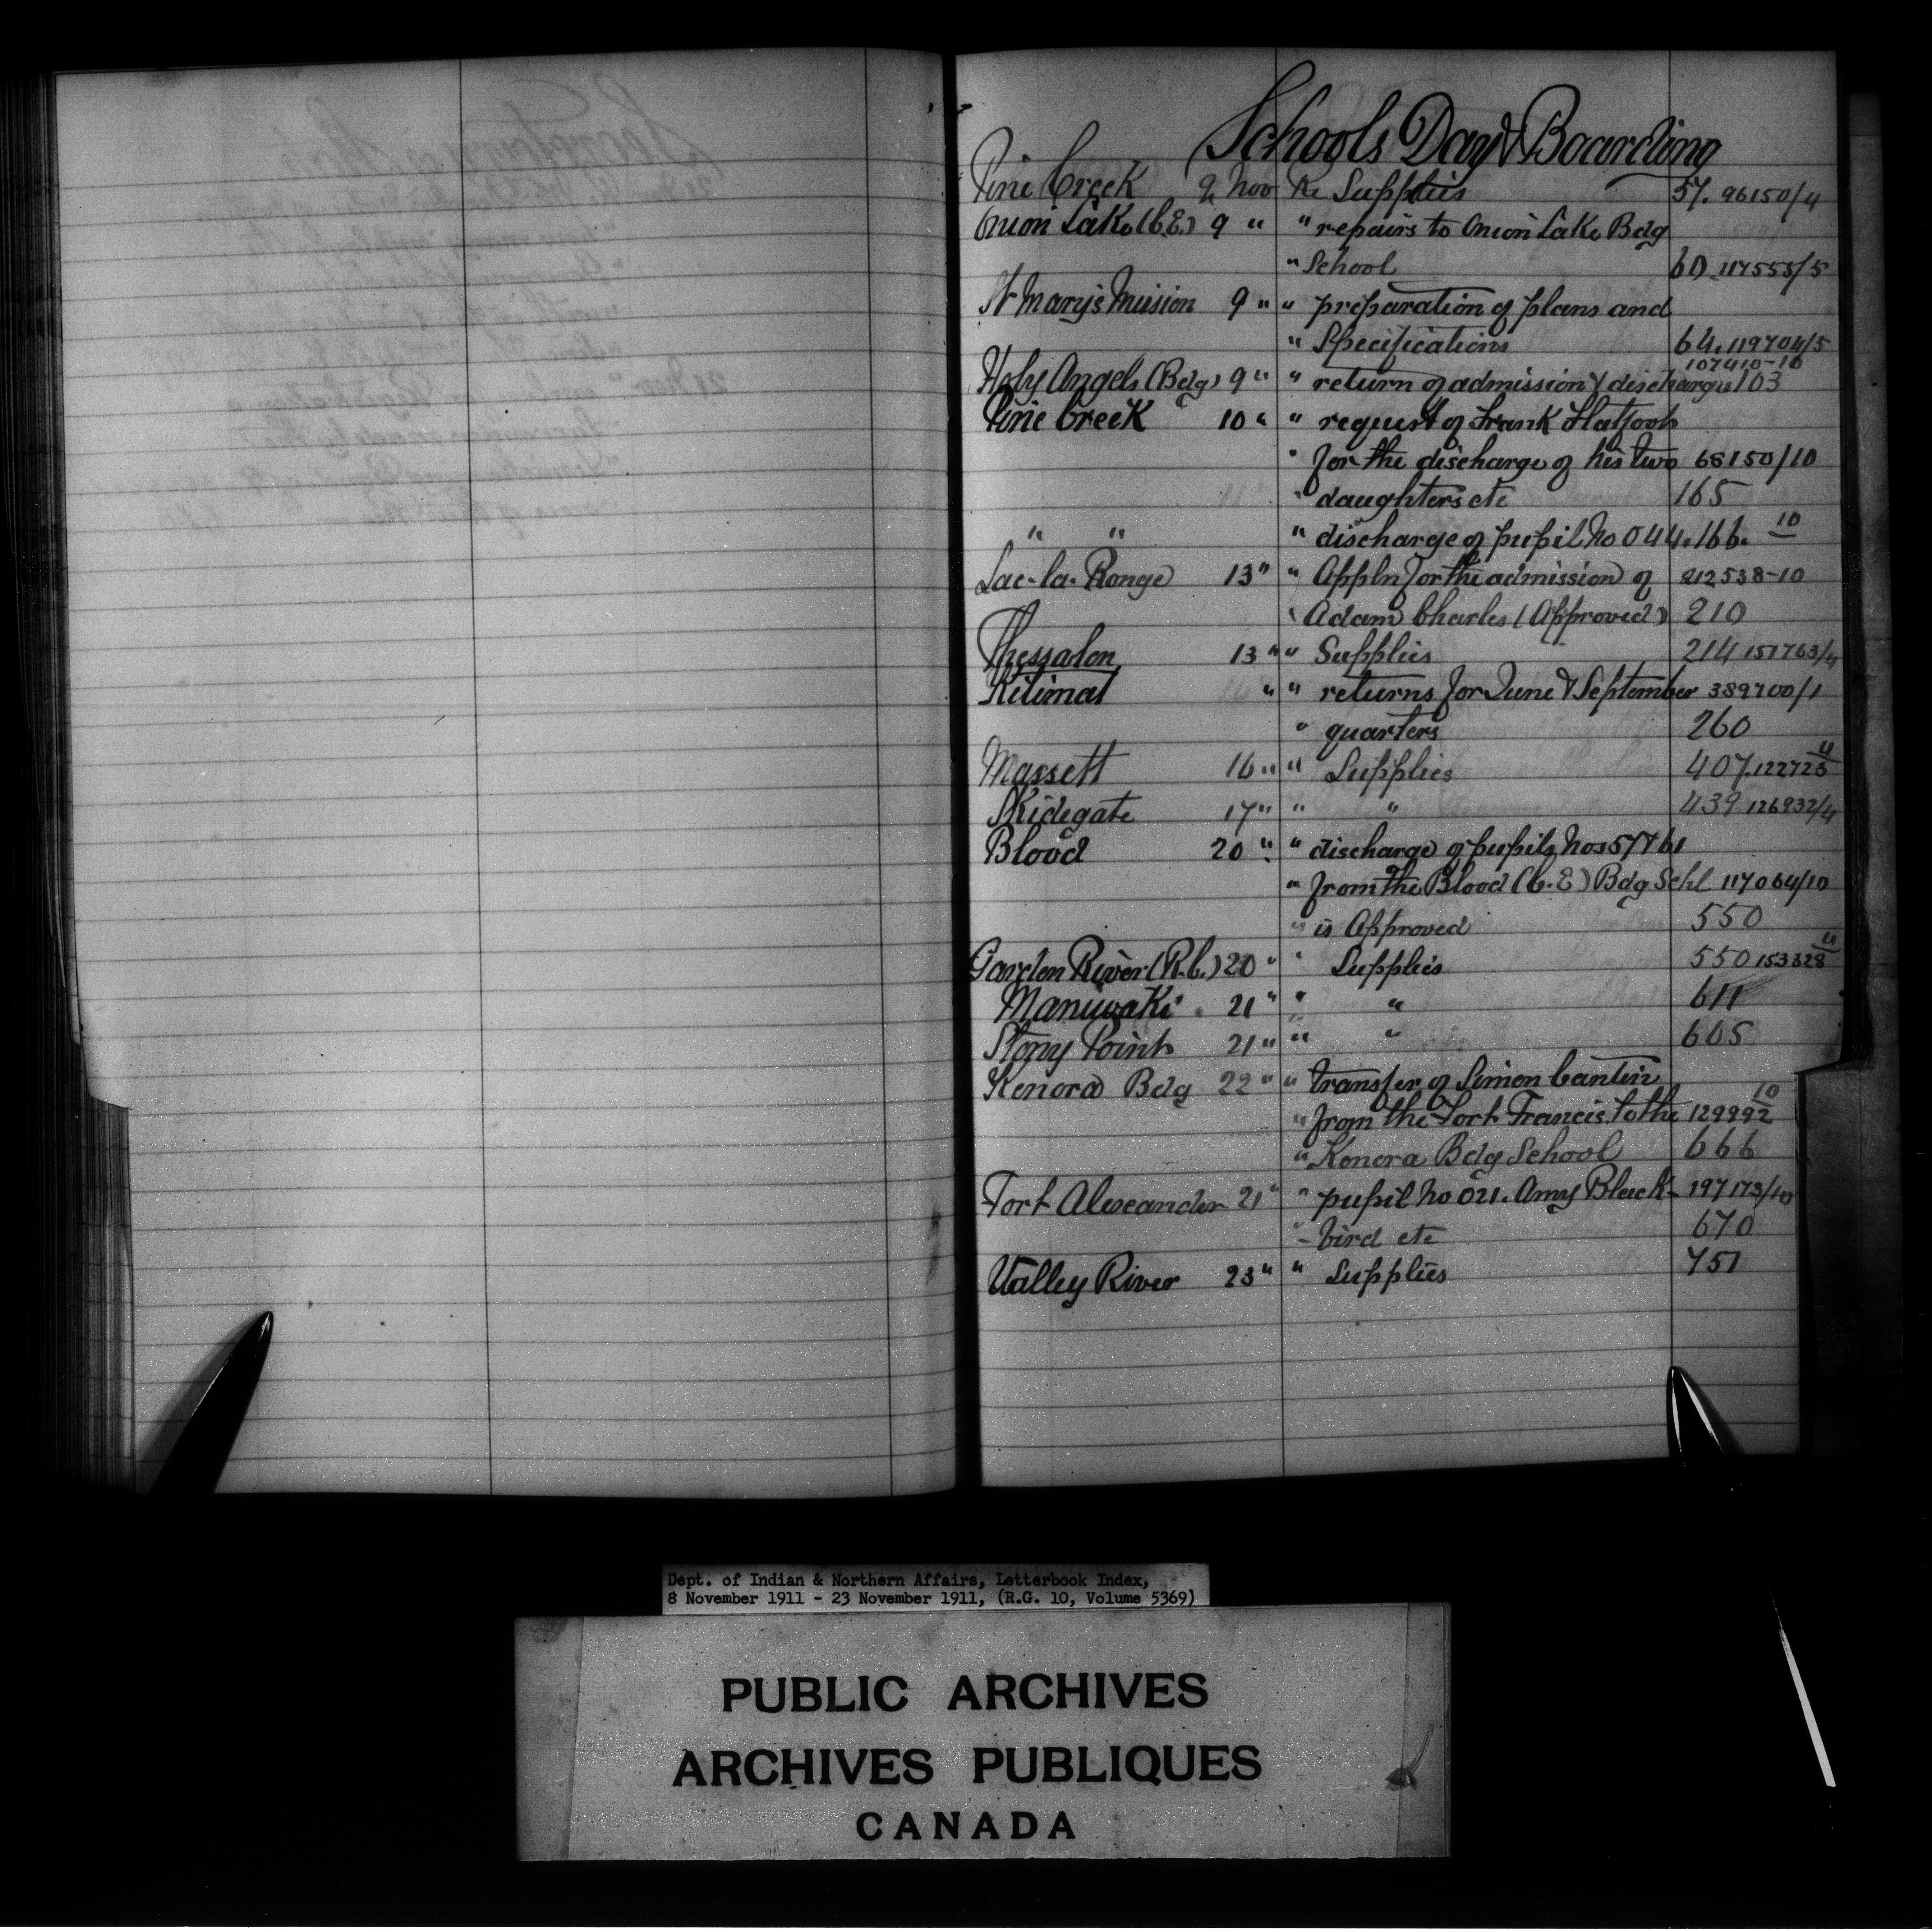 Schools Day & Boarding
Pine Creek 9 Nov Re Supplies 57. 96150/4
Onion Lake (C.E.) 9 " " repairs to Onion Lake Bdg
" School 60. 117555/5
St Mary's Mission 9 " " preparation of plans and
" Specifications 64. 119704/5
107410-10
Holy Angels (Bdg) 9 " " return of admission & discharges 103
Pine Creek 10 " " request of Frank Flatfoot
" for the discharge of his two 68150/10
" daughters etc 165
" " " discharge of pupil No 044. 166. 10
Lac-la-Ronge 13 " " Appln for the admission of 212538-10
" Adam Charles (Approved) 210
Thessalon 13 " " Supplies 214 151763/4
Kitimat " " returns for June & September 389700/1
" quarters 260
Massett 16 " " Supplies 407. 122723 4
Skidegate 17 " " " 439 126932/4
Blood 20 " " discharge of pupils Nos 57 & 61
" from the Blood (C.E) Bdg Schl 117064/10
" is Approved 550
Garden River (R.C.) 20 " " Supplies 550 153328 4
Maniwaki 21 " " " 611
Stony Point 21 " " " 605
Kenora Bdg 22 " " transfer of Simon Cantin
" from the Fort Francis to the 129992 10
" Kenora Bdg School 666
Fort Alexander 21 " " pupil No 021. Amy Black- 197173/10
" - bird etc 670
Valley River 23 " " Supplies 751
Dept. of Indian & Northern Affairs, Letterbook Index,
8 November 1911 - 23 November 1911, (R.G. 10, Volume 5369)
PUBLIC ARCHIVES
ARCHIVES PUBLIQUES
CANADA